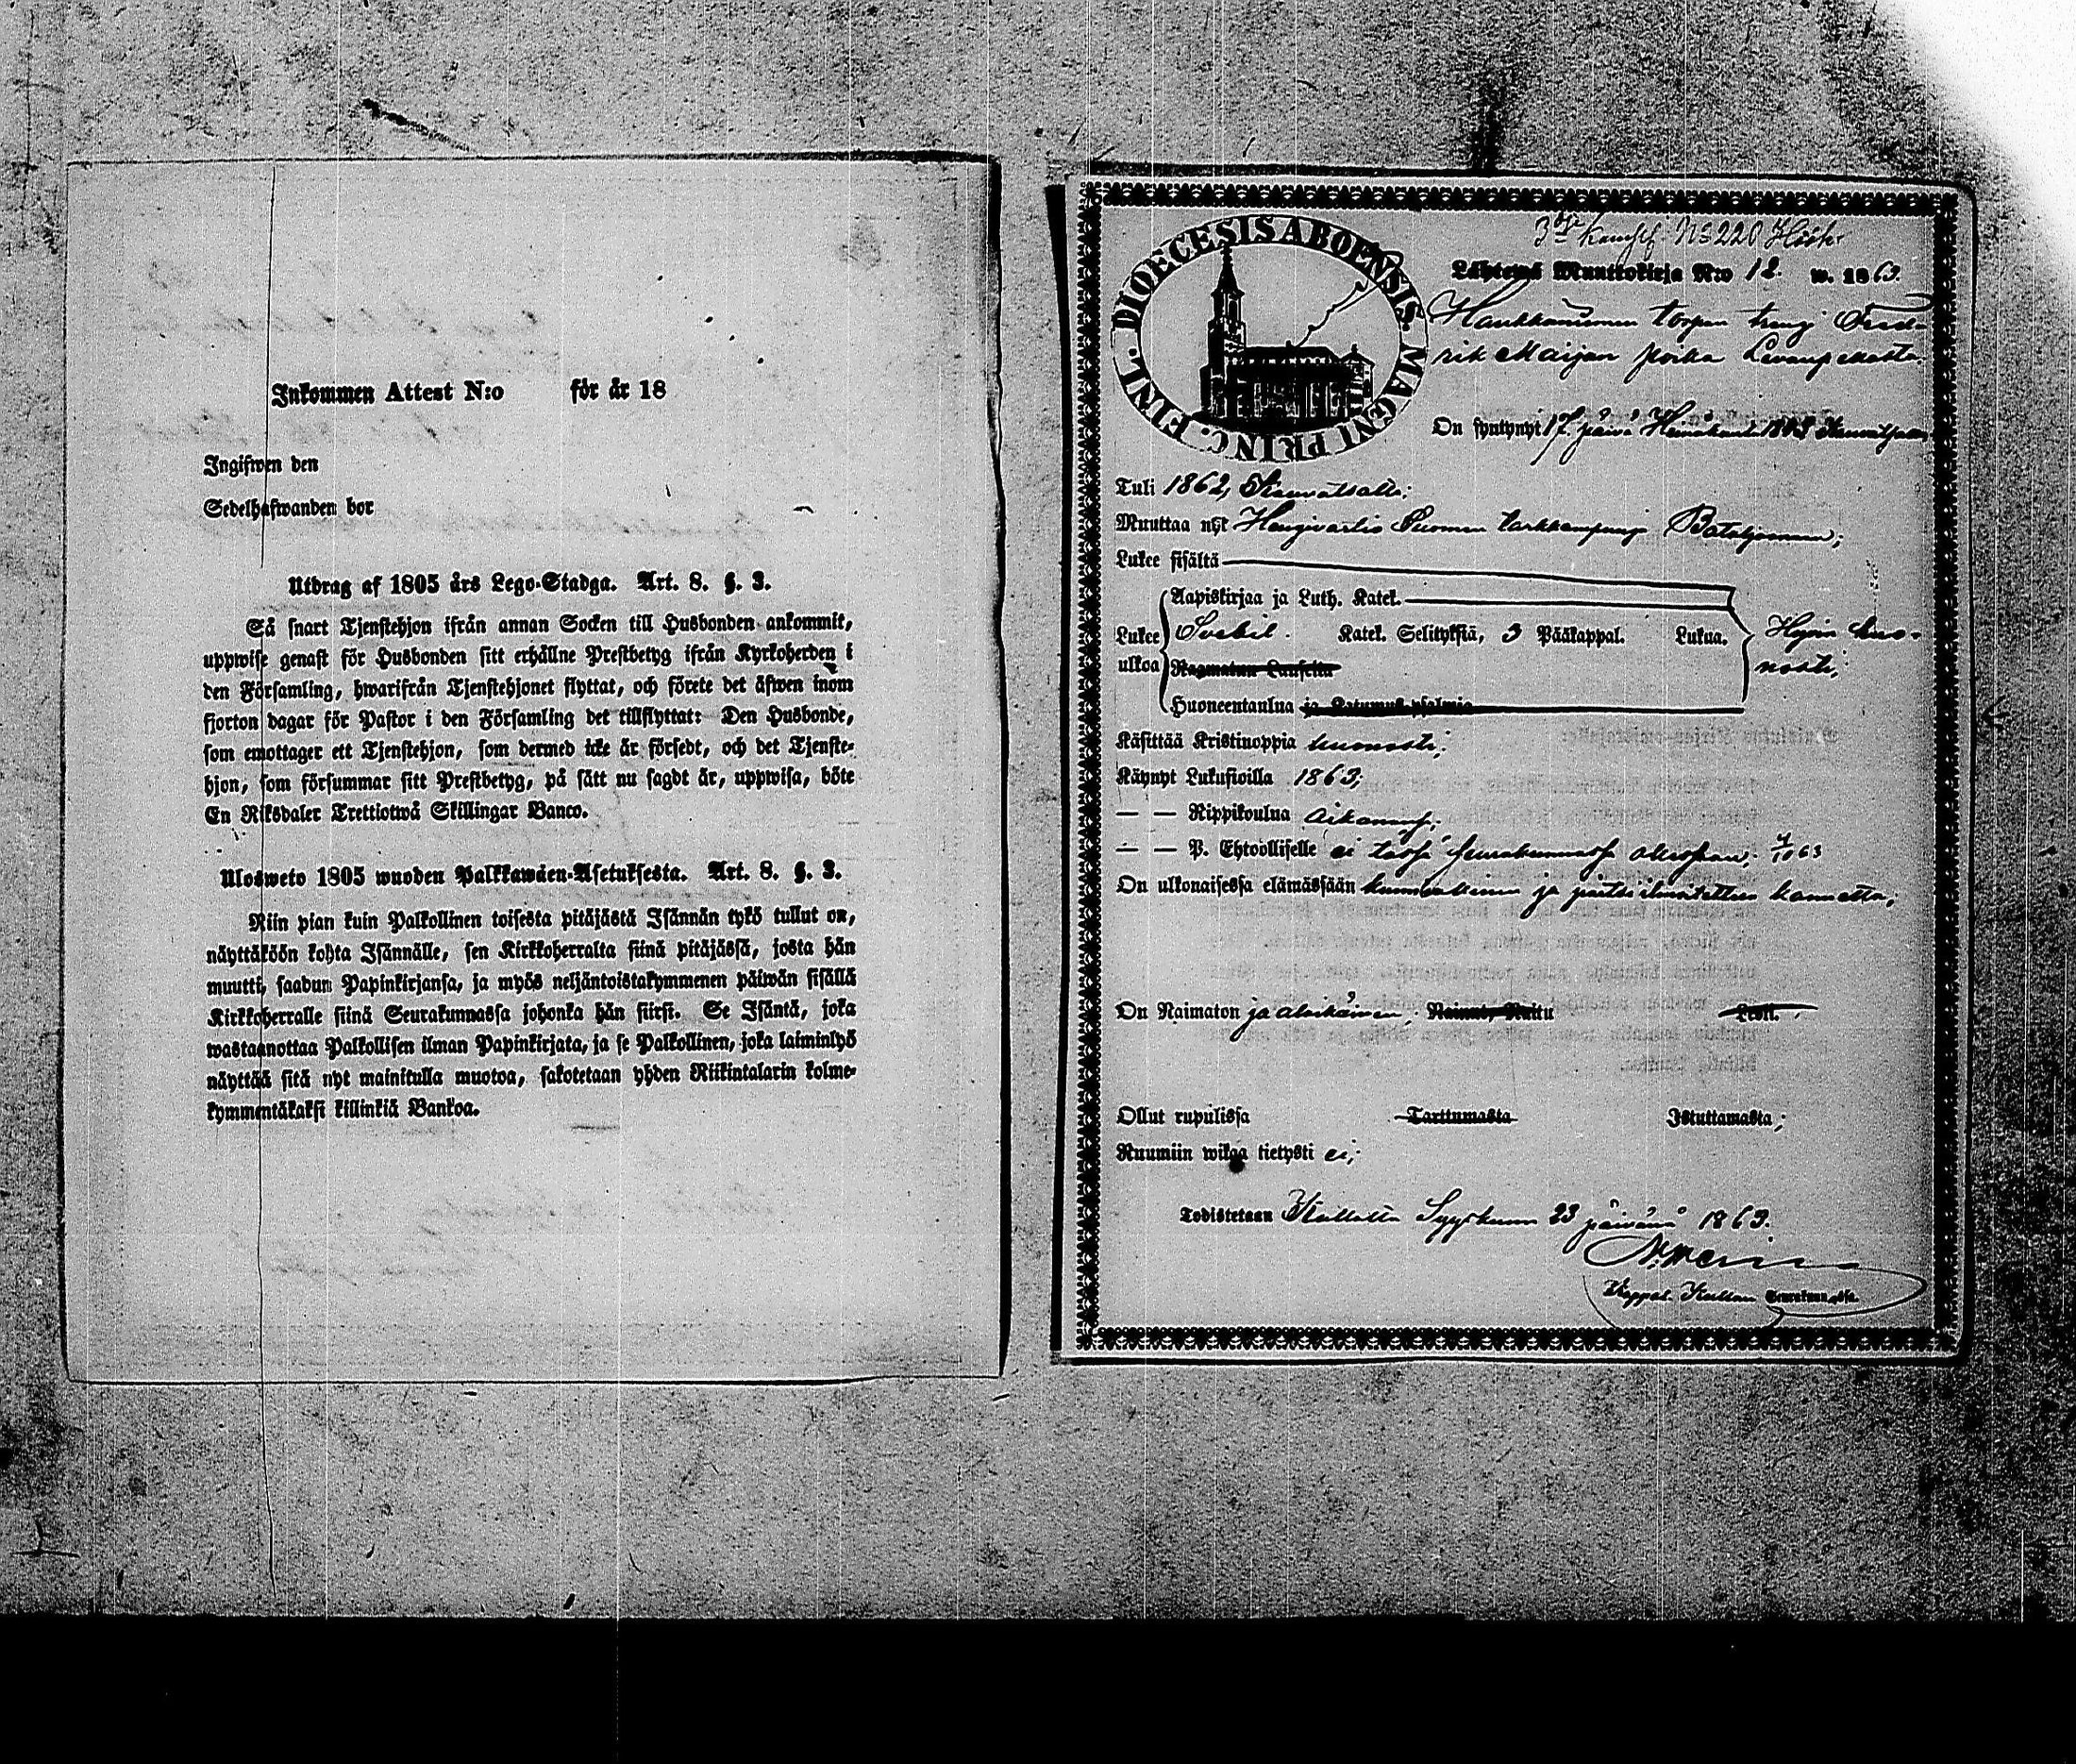 Inkommen Attest N:o för år 18
Ingifwen den
Sedelhafwanden bor
Utdrag af 1805 års Lego-Stadga. Art. 8. §. 3.
Så snart Tjenstehjon ifrån annan Socken till Husbonden ankommit,
uppwise genast för Husbonden sitt erhållne Prestbetyg ifrån Kyrkoherden i
den Församling, hwarifrån Tjenstehjonet flyttat, och förete det äfwen inom
fjorton dagar för Pastor i den Församling det tillflyttat: Den Husbonde,
som emottager ett Tjenstehjon, som dermed icke är försedt, och det Tjenste-
hjon, som försummar sitt Prestbetyg, på sätt nu sagdt är, uppwisa, böte
En Riksdaler Trettiotwå Skillingar Banco.
Ulosweto 1805 wuoden Palkkawäen-Asetuksesta. Art. 8. §. 3.
Niin pian kuin Palkollinen toisesta pitäjästä Isännän tykö tullut on,
näyttäköön kohta Isännälle, sen Kirkkoherralta siinä pitäjässä, josta hän
muutti, saadun Papinkirjansa, ja myös neljäntoistakymmenen päiwän sisällä
Kirkkoherralle siinä Seurakunnassa johonka hän siirsi. Se Isäntä, joka
wastaanottaa Palkollisen ilman Papinkirjata, ja se Palkollinen, joka laiminlyö
näyttää sitä nyt mainitulla muotoa, sakotetaan yhden Riikintalarin kolme-
kymmentäkaksi killinkiä Bankoa.
DIOECESIS ABOENSIS. MAGNI PRINC. FINL.
3 Komp. No 220 Höök
Lähtewä Muuttokirja N:o 12. w. 1863.
torpan trengi Fred-
rik Maijan poika
On syntynyt 17. päivä Heinäkuuta
Tuli 1862,
Muuttaa nyt Suomen tarkkampuja Bataljonaan;
Lukee sisältä
Aapiskirjaa ja Luth. Katek.
Lukee Svebil. Katek. Selityksiä, 5 Pääkappal. Lukua. Hyvin kuo-
ulkoa Raamatun Lauseita nosti;
Huoneentaulua ja Katumus-psalmia
Käsittää Kristinoppia
Käynyt Lukusioilla 1863;
— — Rippikoulua aikanansa;
— — P. Ehtoollisella ei tässä seurakunnassa ollessaan; 63
On ulkonaisessa elämässään ja
On Naimaton ja alaikäinen; Nainut, Naitu Leski.
Ollut rupulissa Tarttumasta Istuttamasta;
Ruumiin wikaa tietysti ei;
Todistetaan Syyskuun 23 päivänä 1863.
Kappal. Seurakunnassa.